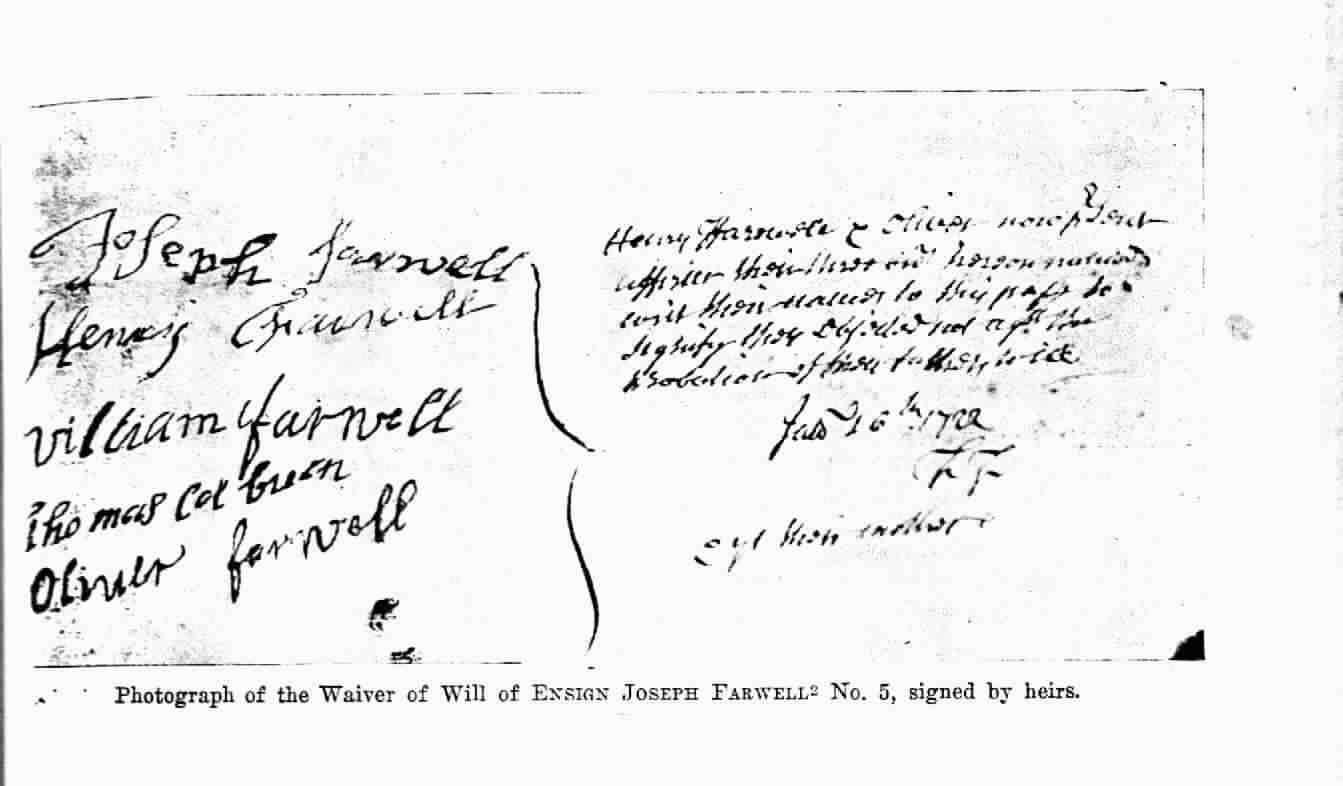 Joseph farwell
Henery Farwell
William farwell
Thomas Colburn
Oliver farwell
Henry Farwell & Oliver now psent
their three hereon named
their names to this to
signify they objected not agst the
of their fathers will
16th 172
F F
their mother
Photograph of the Waiver of Will of ENSIGN JOSEPH FARWELL² No. 5, signed by heirs.